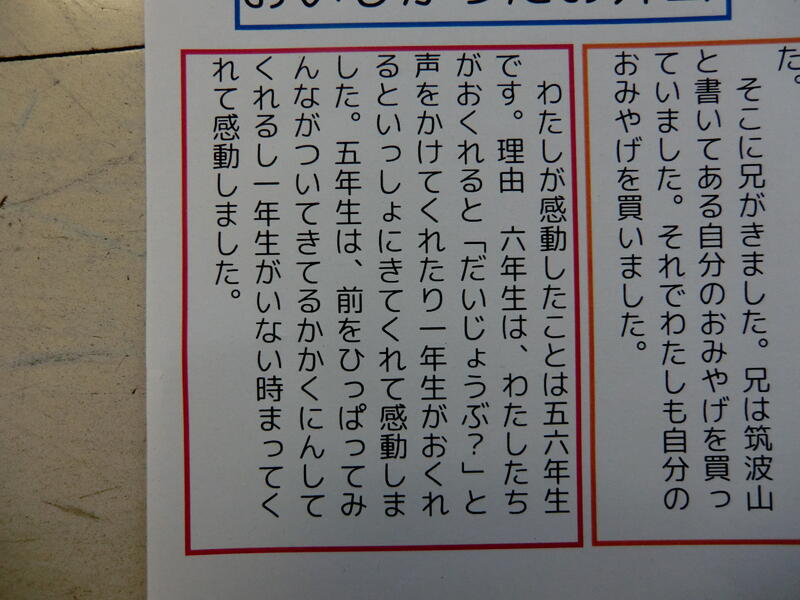 おいしかったお弁当
た。
そこに兄がきました。兄は筑波山
と書いてある自分のおみやげを買っ
ていました。それでわたしも自分の
おみやげを買いました。
わたしが感動したことは五六年生
です。理由　六年生は、わたしたち
がおくれると「だいじょうぶ?」と
声をかけてくれたり一年生がおくれ
るといっしょにきてくれて感動しま
した。五年生は、前をひっぱってみ
んながついてきてるかかくにんして
くれるし一年生がいない時まってく
れて感動しました。